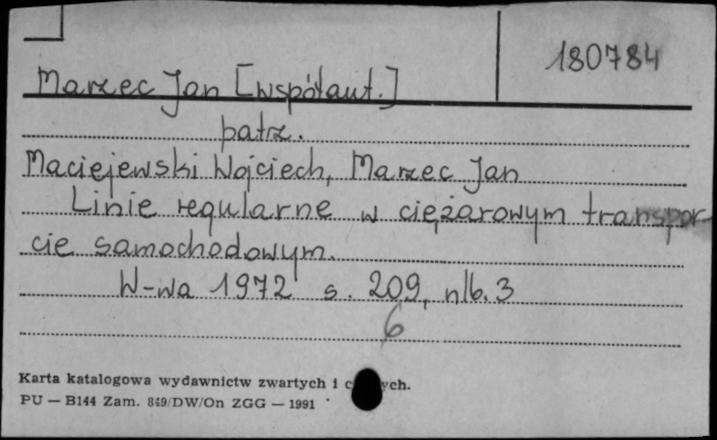 180784
Marzec Jan [współaut.]
patrz.
Maciejewski Wojciech, Marzec Jan
Linie regularne w ciężarowym transpor-
cie samochodowym.
W-wa 1972 s. 209, nlb. 3
6
Karta katalogowa wydawnictw zwartych i
PU — B144 Zam. 849/DW/On ZGG — 1991